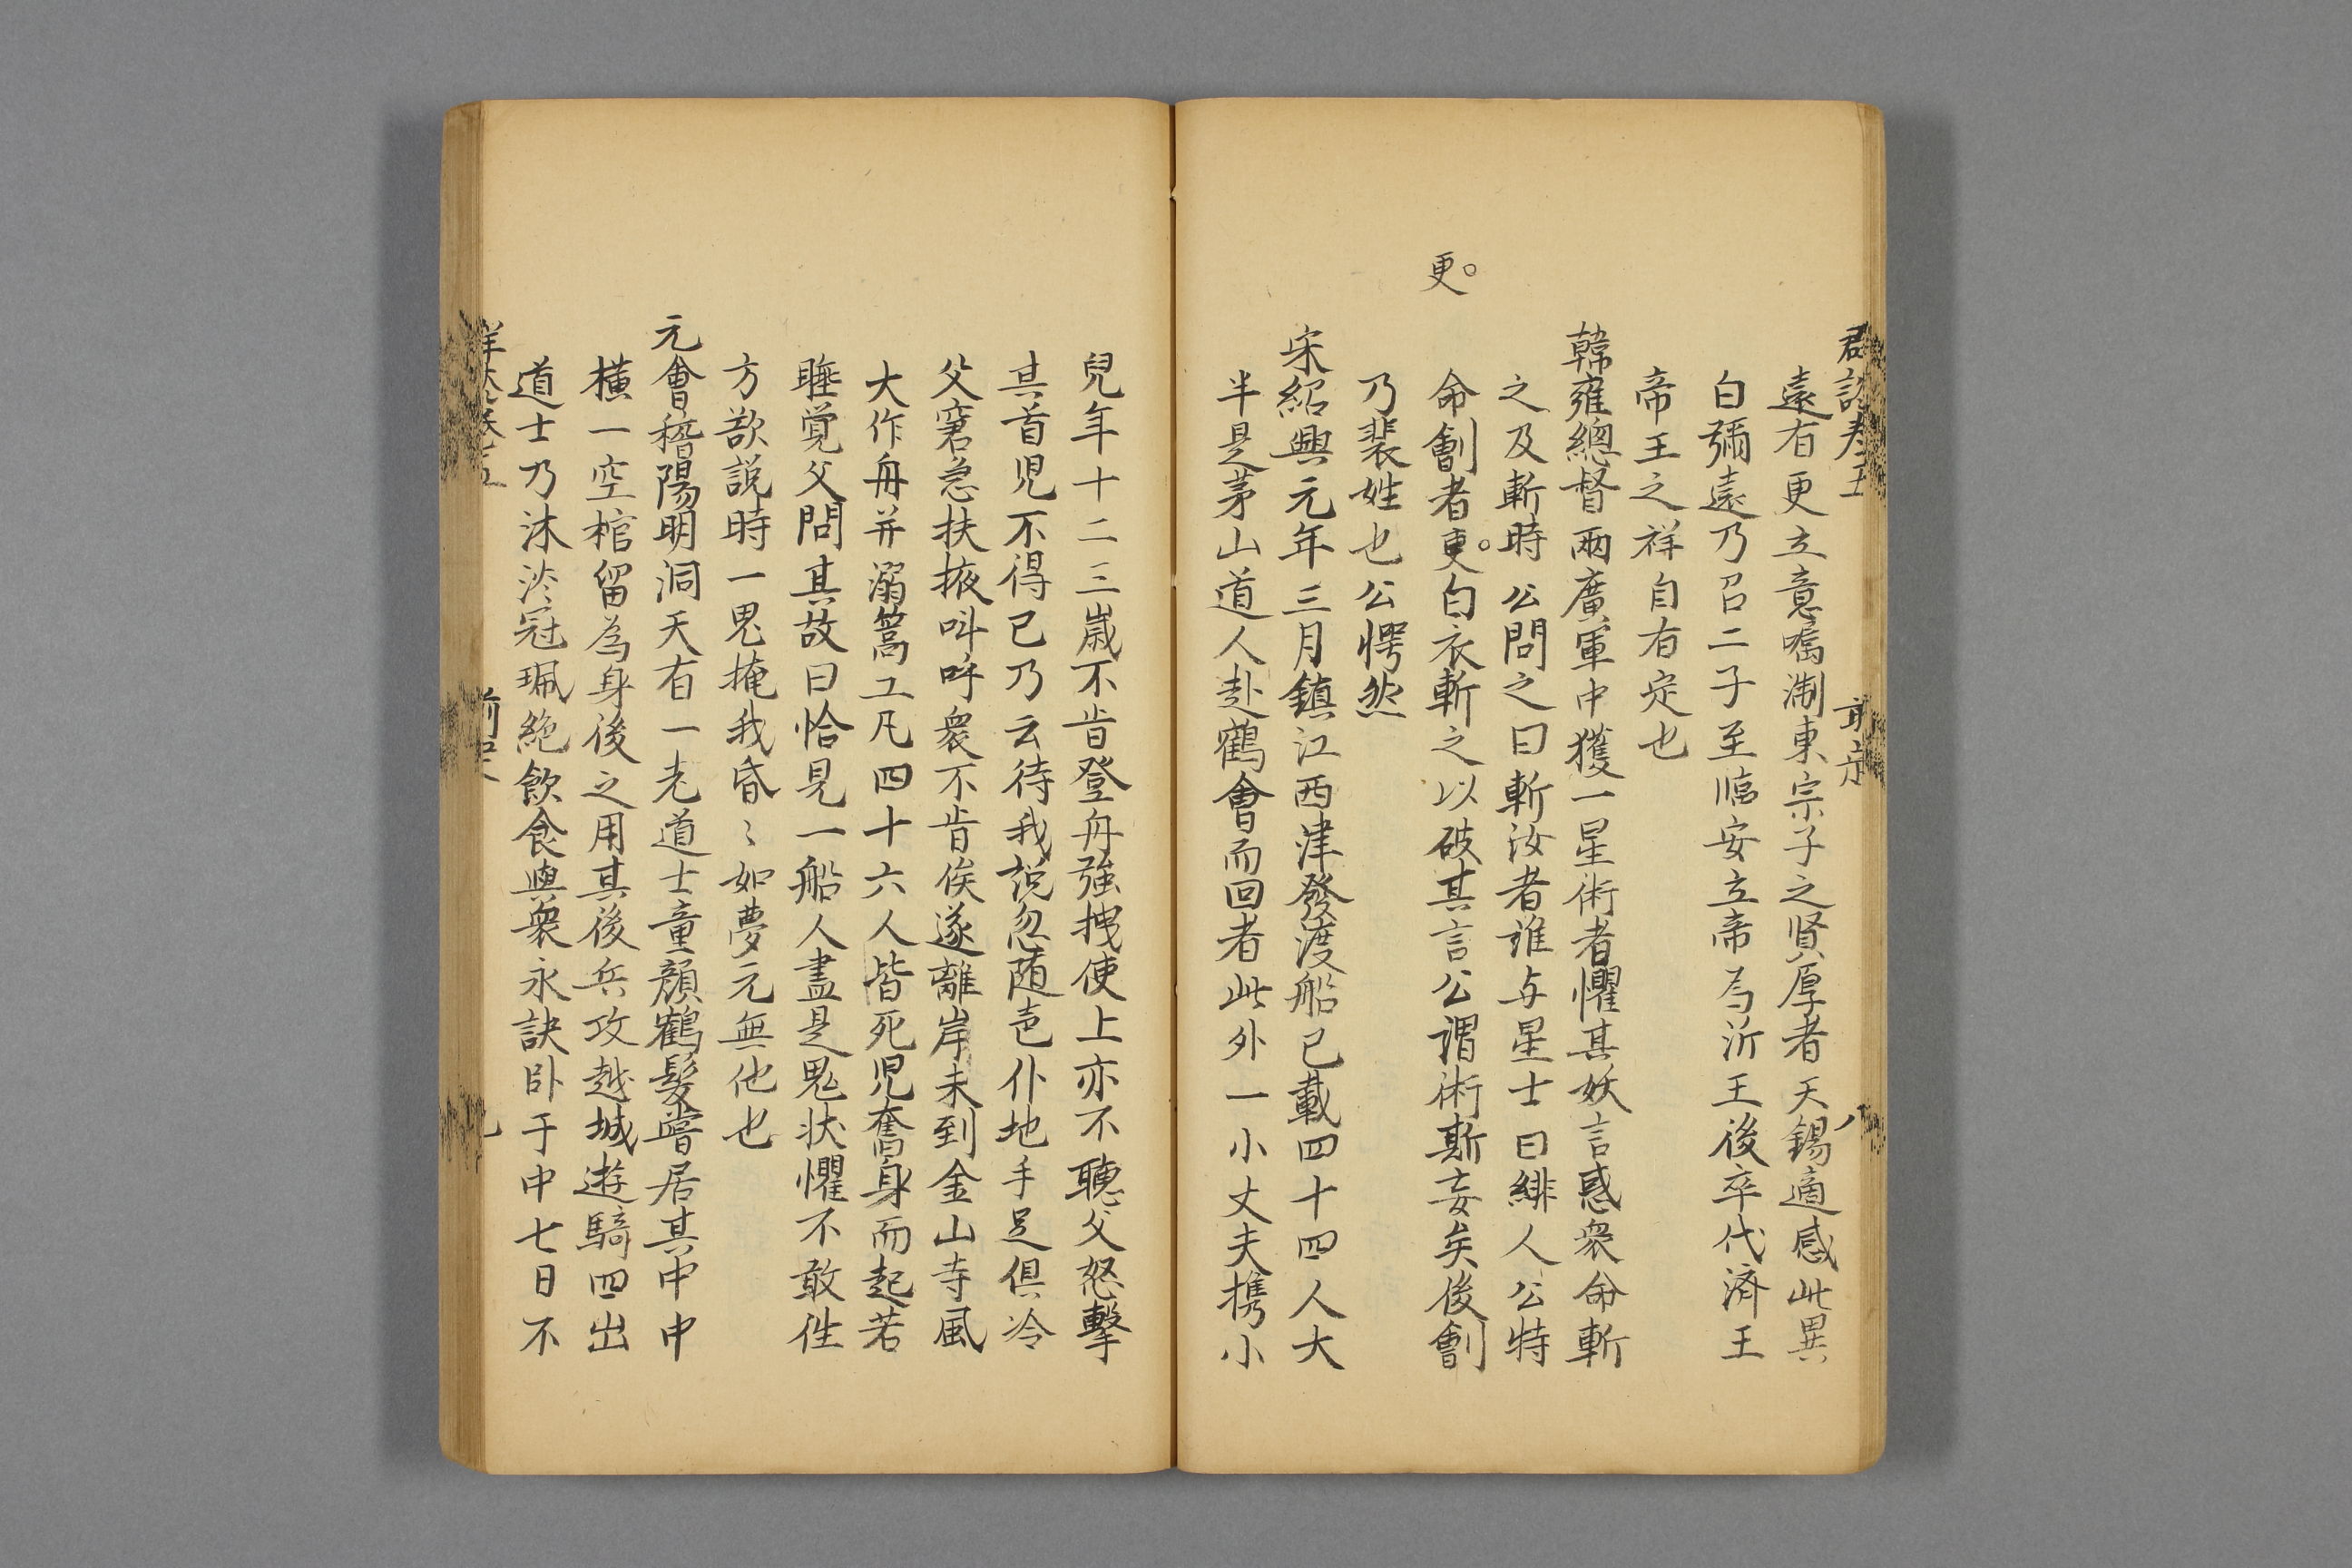 遠有更立意囑淛東宗子之賢厚者天錫適感此異
白彌遠乃召二子至臨安立帝爲沂王後卒代濟王
帝王之祥自有定也
韓雍總督兩廣軍中獲一星術者懼其妖言惑衆命斬
之及斬時公問之曰斬汝者誰与星士曰緋人公特
更
命劊者更白衣斬之以破其言公謂術斯妄矣後劊
乃裴姓也公愕然
宋紹興元年三月鎮江西津發渡船已載四十四人大
半是茅山道人赴鶴會而回者此外一小丈夫携小
兒年十二三歲不肯登舟強拽使上亦不聽父怒擊
其首児不得已乃云待我説忽随岜仆地手足俱冷
父窘急扶掖叫呼衆不肯俟遂離岸未到金山寺風
大作舟并溺篙工凡四十六人皆死児奮身而起若
睡覺父問其故曰恰見一船人盡是鬼状懼不敢徃
方欲説時一鬼掩我昏〻如夢元無他也
元會稽陽明洞天有一老道士童顏鶴髮嘗居其中中
橫一空棺留為身後之用其後兵攻越城遊騎四出
道士乃沐浴冠珮絶飲食與衆永訣卧于中七日不